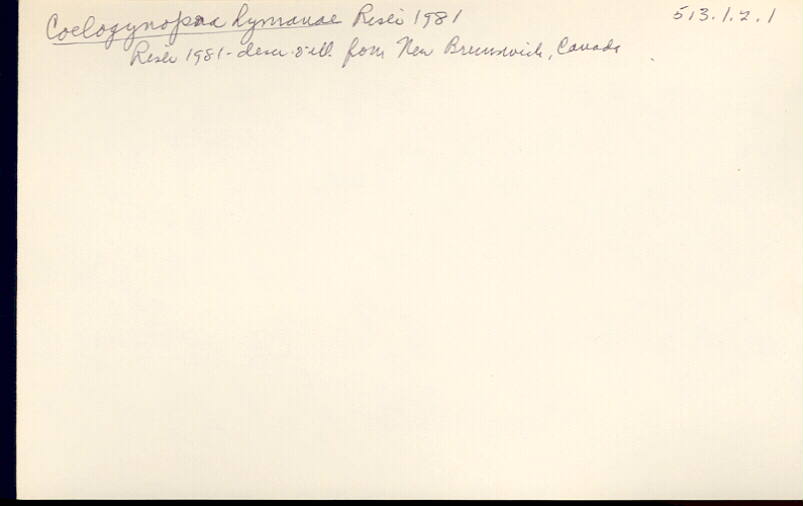 Coelogynopora hymanae Riser 1981 513.1.2.1
Riser 1981 - descr. & ill. from New Brunswick, Canada